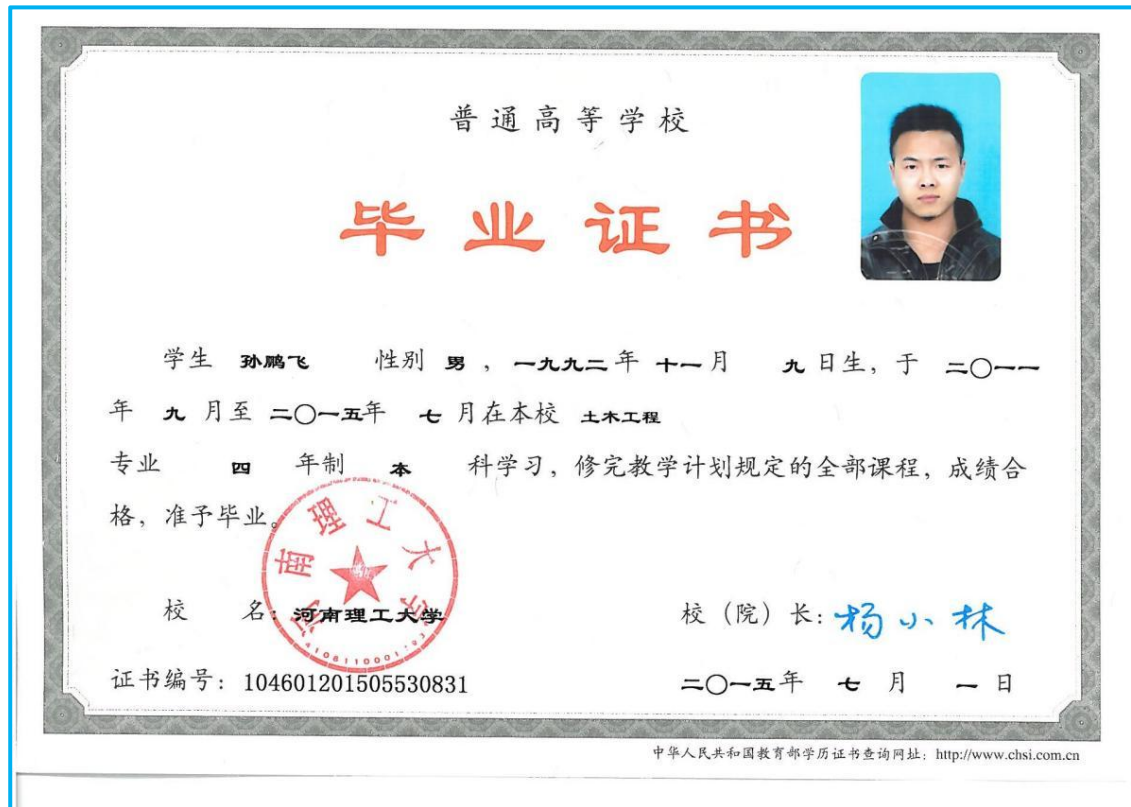 普通高等学校
毕业证书
学生 孙鹏飞 性别 男，一九九二年 十一月 九日生，于 二〇一一
年 九 月至 二〇一五年 七 月在本校 土木工程
专业 四 年制 本 科学习，修完教学计划规定的全部课程，成绩合
格，准予毕业。
河南理工大学
校 名：河南理工大学
校（院）长：杨小林
证书编号：104601201505530831
二〇一五年 七 月 一 日
中华人民共和国教育部学历证书查询网址：http://www.chsi.com.cn